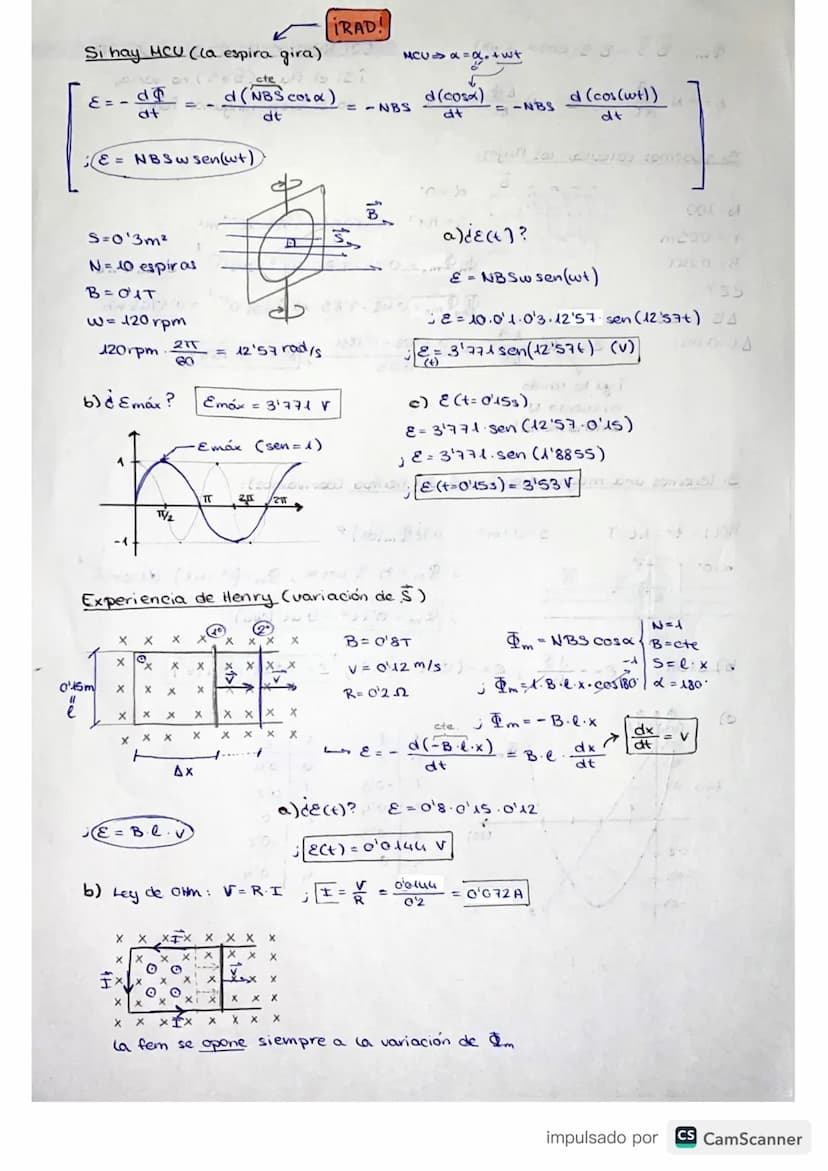 ¡RAD!
Si hay MCU (la espira gira)
MCU => α = α₀ + wt
cte
ε = - dΦ/dt = - d(NBS cosα)/dt = -NBS d(cosα)/dt = -NBS d(cos(wt))/dt
; ε = NBSw sen(wt)
B
S
S=0'3m²
N=10 espiras
B=0'1T
w=120rpm
120rpm · 2π/60 = 12'57 rad/s
a) ¿ε(t)?
ε = NBSw sen(wt)
; ε = 10·0'1·0'3·12'57· sen(12'57t)
; ε(t) = 3'771 sen(12'57t) (V)
b) ¿εmáx? εmáx = 3'771 V
εmáx (sen=1)
1
π 2π 2π
π/2
-1
c) ε(t=0'15s)
ε = 3'771· sen(12'57·0'15)
; ε = 3'771· sen(1'8855)
; ε(t=0'15s) = 3'53 V
Experiencia de Henry (variación de S)
1º 2º
x x x x x x x x
v v
0'15m
=
ℓ
Δx
B=0'8T
v=0'12 m/s
R=0'2Ω
Φm = NBS cosα
N=1
B=cte
S=ℓ·x
α=180º
; Φm = 1·B·ℓ·x·cos180 -1
; Φm = -B·ℓ·x
cte
ε = - d(-B·ℓ·x)/dt = B·ℓ· dx/dt
dx/dt = v
; ε = B·ℓ·v
a) ¿ε(t)? ε = 0'8·0'15·0'12
; ε(t) = 0'0144 V
b) Ley de Ohm: V=R·I ; I = V/R = 0'0144/0'2 = 0'072A
I
I
v
I
La fem se opone siempre a la variación de Φm
impulsado por CS CamScanner